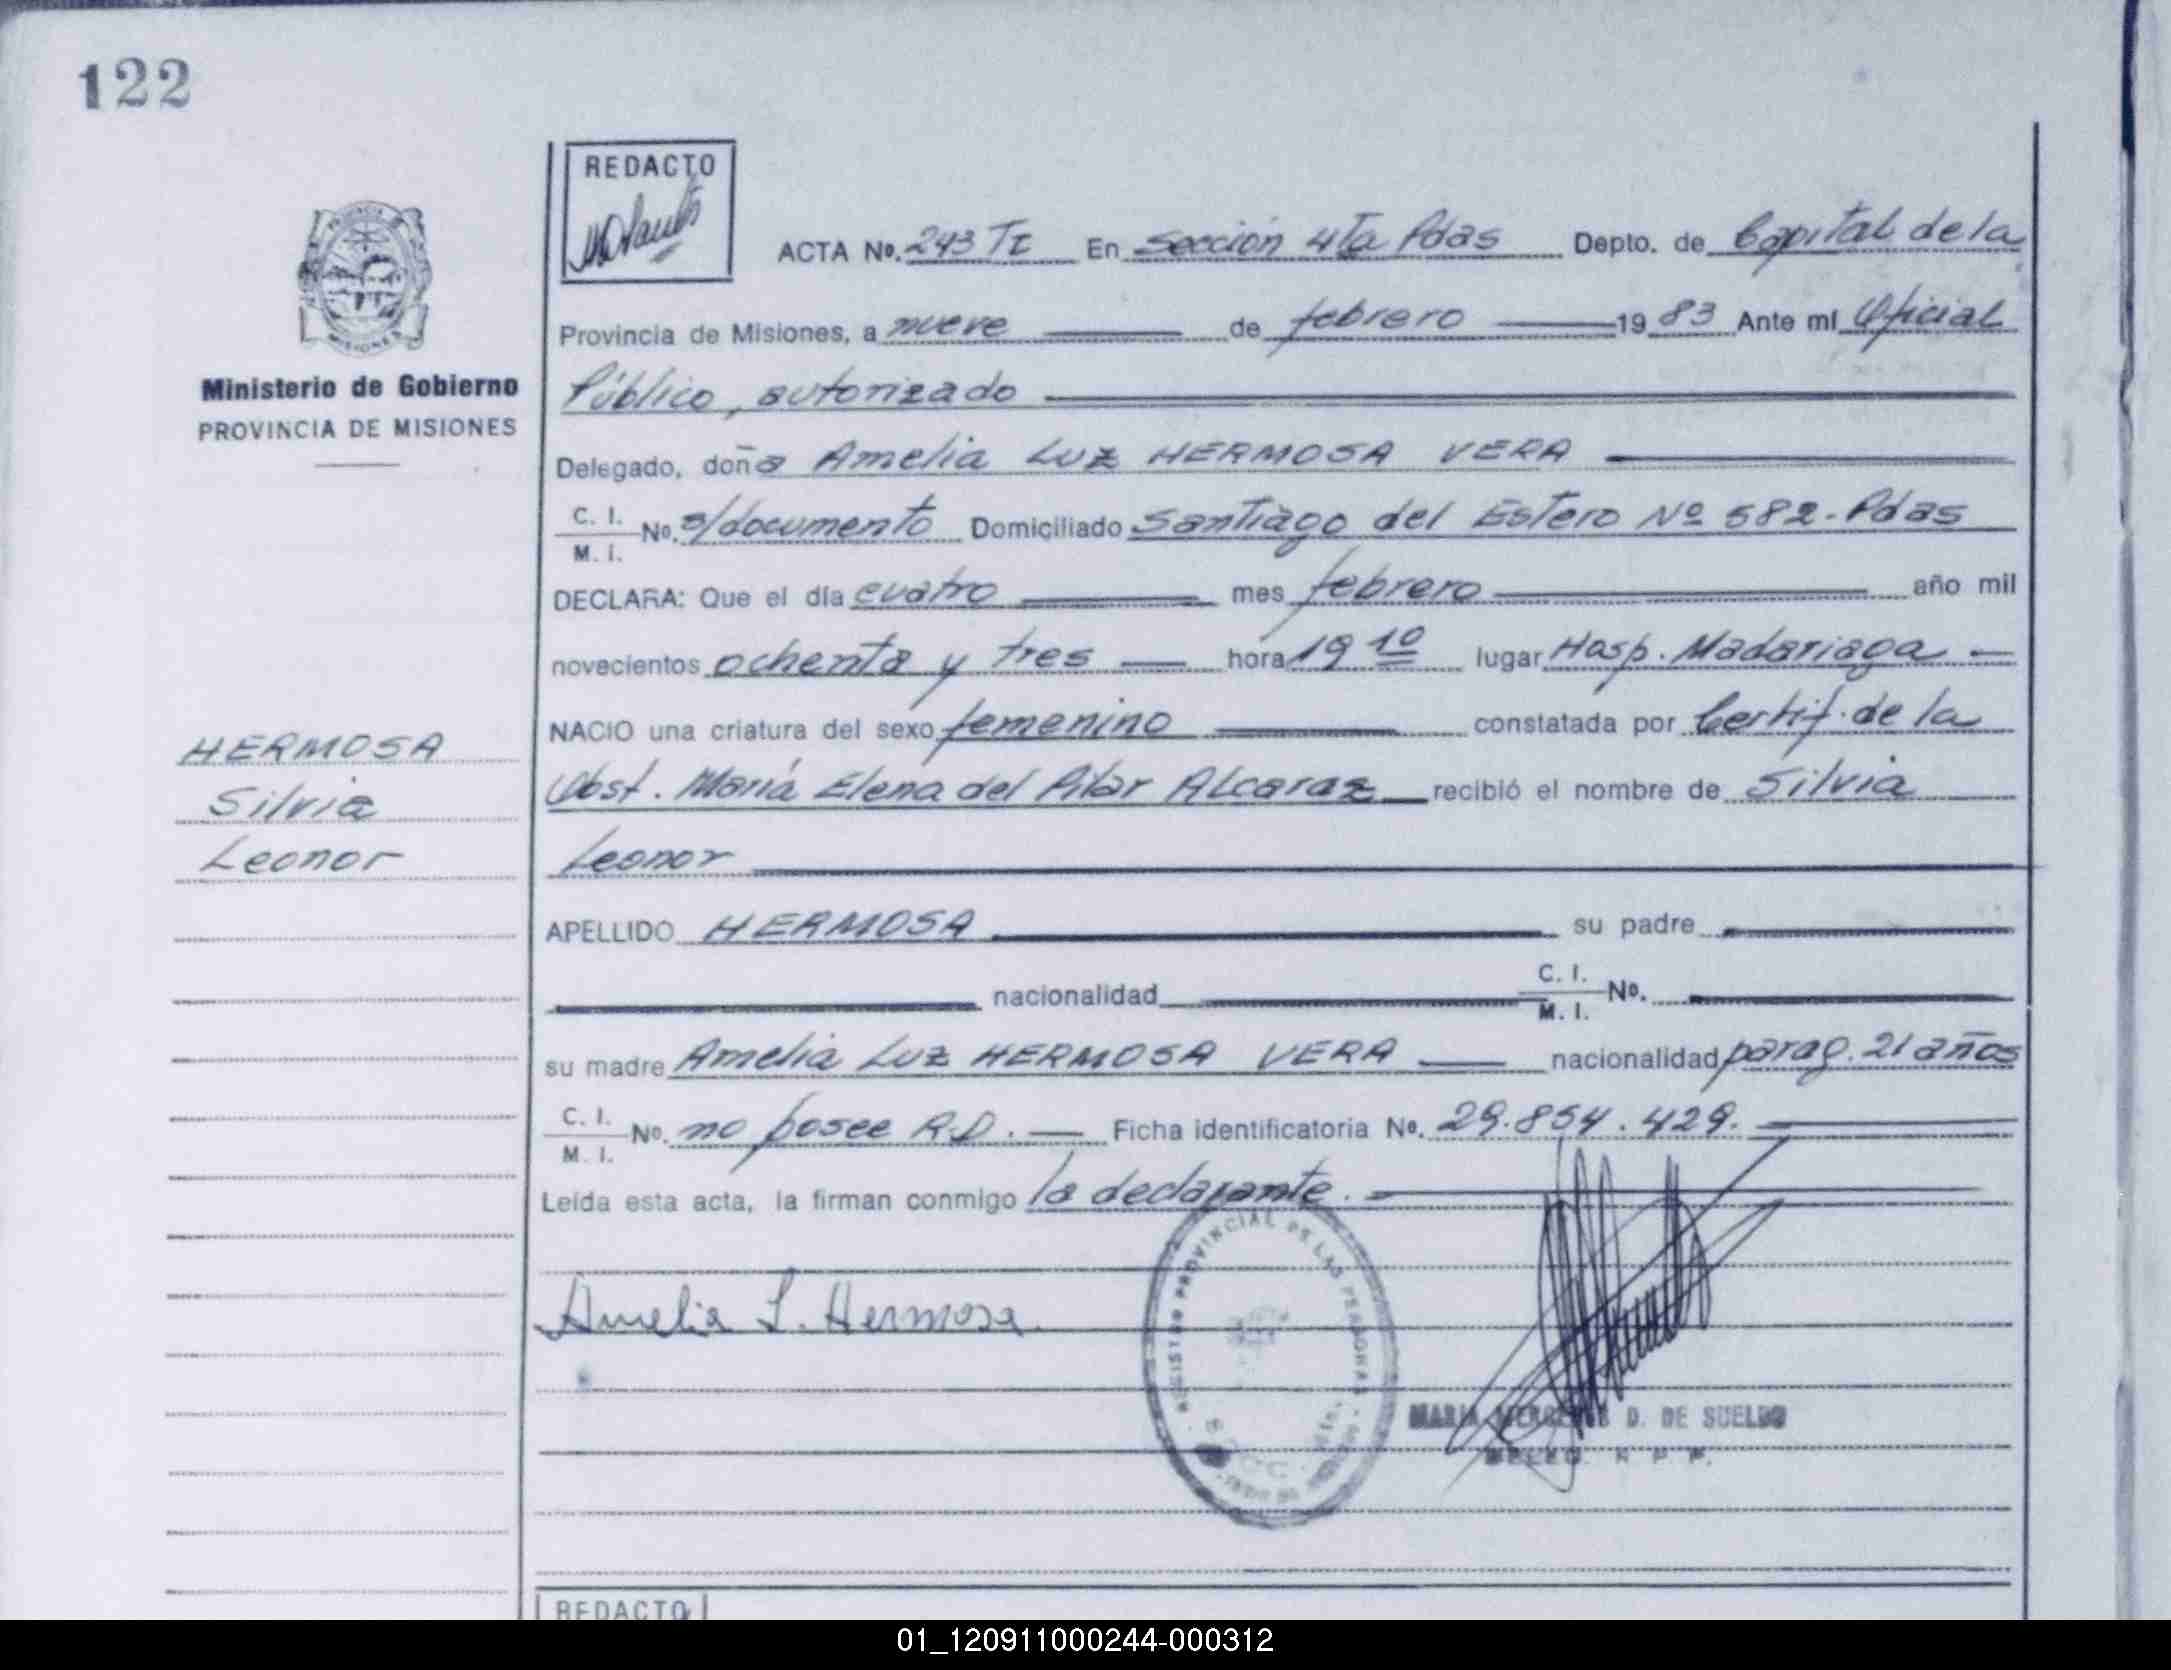 122
REDACTO
PROVINCIA DE
MISIONES
Ministerio de Gobierno
PROVINCIA DE MISIONES
ACTA No. 243 TI En sección 4ta Pdas Depto. de Capital de la
Provincia de Misiones, a nueve de febrero 1983 Ante mí Oficial
Público, autorizado
Delegado, doña Amelia Luz HERMOSA VERA
C. I.
M. I. No. s/documento Domiciliado Santiago del Estero Nº 582 - Pdas
DECLARA: Que el día cuatro mes febrero año mil
novecientos ochenta y tres hora 19 10 lugar Hosp. Madariaga
NACIO una criatura del sexo femenino constatada por Certif. de la
Obst. María Elena del Pilar Alcaraz recibió el nombre de Silvia
Leonor
HERMOSA
Silvia
Leonor
APELLIDO HERMOSA su padre
nacionalidad C. I.
M. I. No.
su madre Amelia Luz HERMOSA VERA nacionalidad parag. 21 años
C. I.
M. I. No. no posee R.D. Ficha identificatoria No. 29.854.429.
Leída esta acta, la firman conmigo la declarante.
Amelia L. Hermosa
REGISTRO PROVINCIAL DE LAS PERSONAS
MARIA MERCEDES D. DE SUELDO
DELEG. R. P. P.
REDACTO
01_120911000244-000312